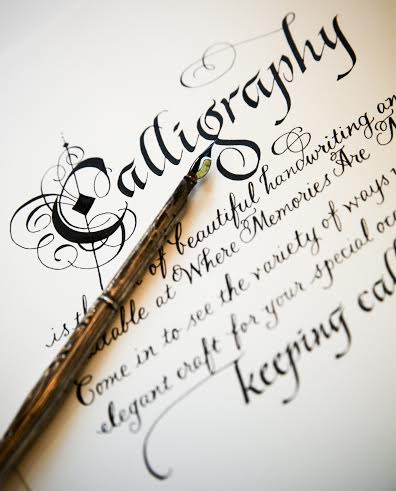 Calligraphy
is the of beautiful handwriting an
at Where Memories Are M
Come in to see the variety of ways
elegant craft for your special occ
keeping call